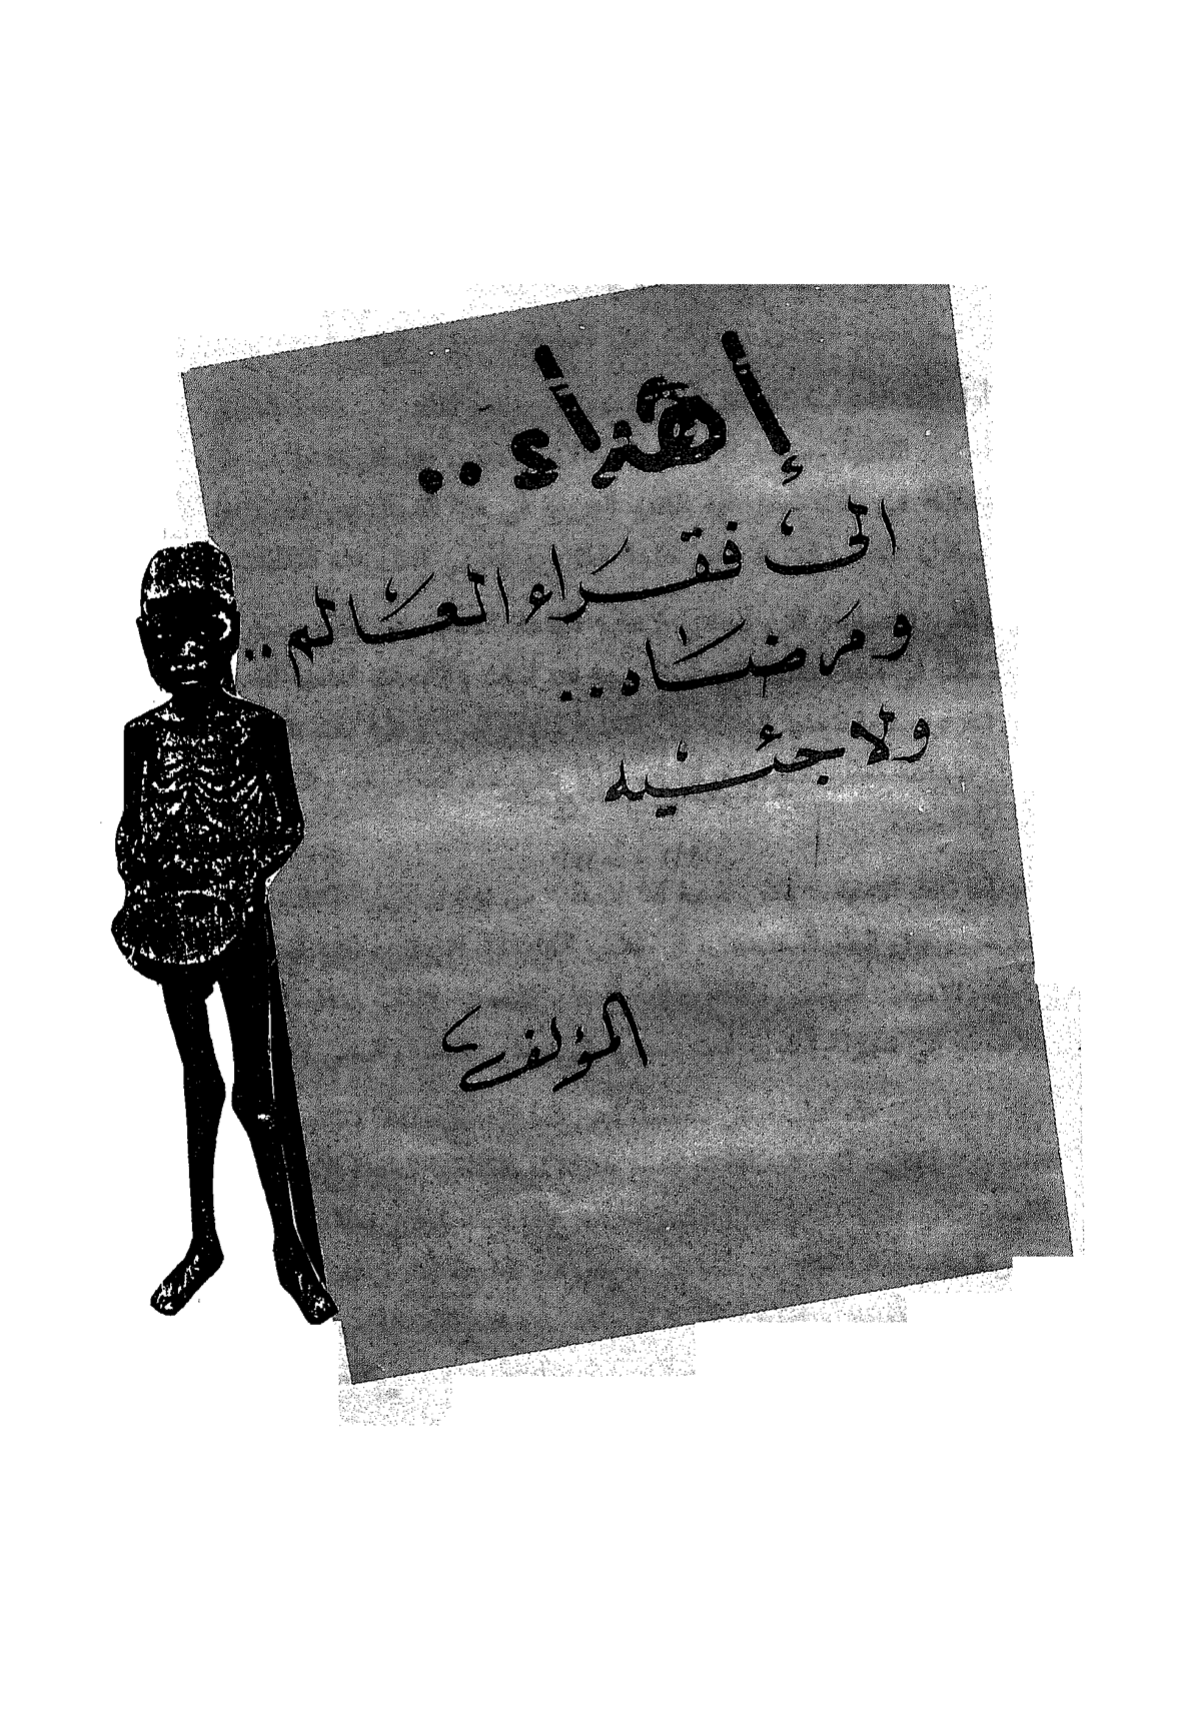 إهداء..
الى فقراء العالم..
ومرضاه..
ولاجئيه
المؤلف